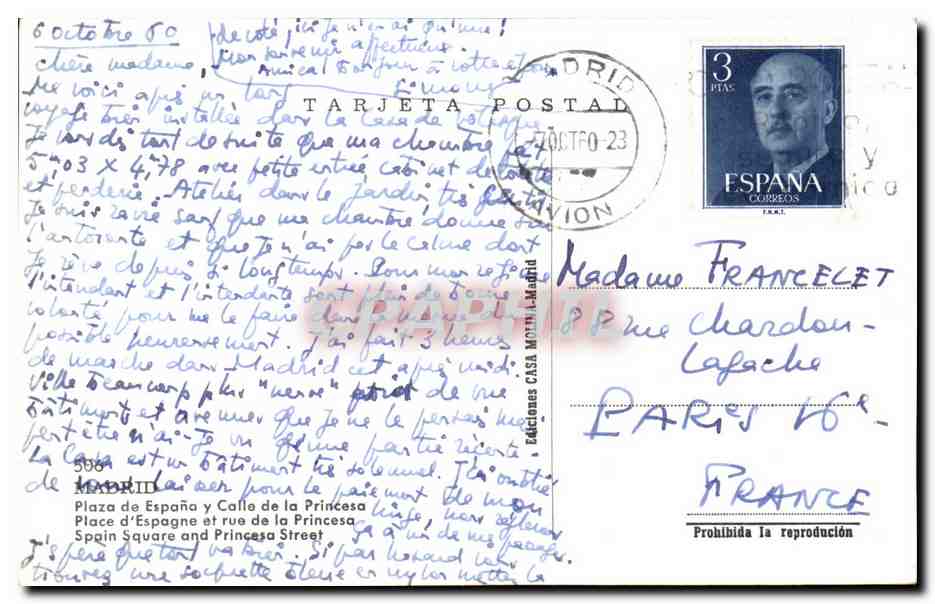 6 octobre 60
Chère madame,
de côté, ici je n'en ai qu'une!
Mon souvenir affectueux.
Amical bonjour à votre
Simone
Me voici après un long
voyage bien installée dans la Casa de Velasquez
Je vous dis tout de suite que ma chambre fait
5m,03 X 4m,78 avec petite entrée cabinet de toilette
et penderie. Atelier dans le jardin, très
Je suis ravie sauf que ma chambre donne sur
l'autoroute et que je n'ai pas le calme dont
je rêve depuis si longtemps. Pour mon
l'intendant et l'intendante sont plein de bonne
volonté pour me le faire dans la mesure du
possible heureusement. J'ai fait 3 heures
de marche dans Madrid cet après midi.
Ville beaucoup plus "neuve" point de vue
bâtiments et avenues que je ne le pensais mais
peut être n'ai-je vu qu'une partie récente.
La Casa est un bâtiment très solennel. J'ai oublié
de vous laisser pour le paiement de mon
linge, nous règlerons
ça à un de mes passages.
J'espère que tout va bien. Si par hasard vous
trouvez une soquette bleue en nylon mettez la
TARJETA POSTAL
MADRID
7 OCT 60-23
AVION
3
PTAS
ESPAÑA
CORREOS
F.N.M.T.
y
Ediciones CASA MOLINA-Madrid
Madame FRANCELET
88 rue Chardon-
Lagache
PARIS 16e-
FRANCE
Prohibida la reproducción
506
MADRID
Plaza de España y Calle de la Princesa
Place d'Espagne et rue de la Princesa
Spain Square and Princesa Street
CPAPHIL